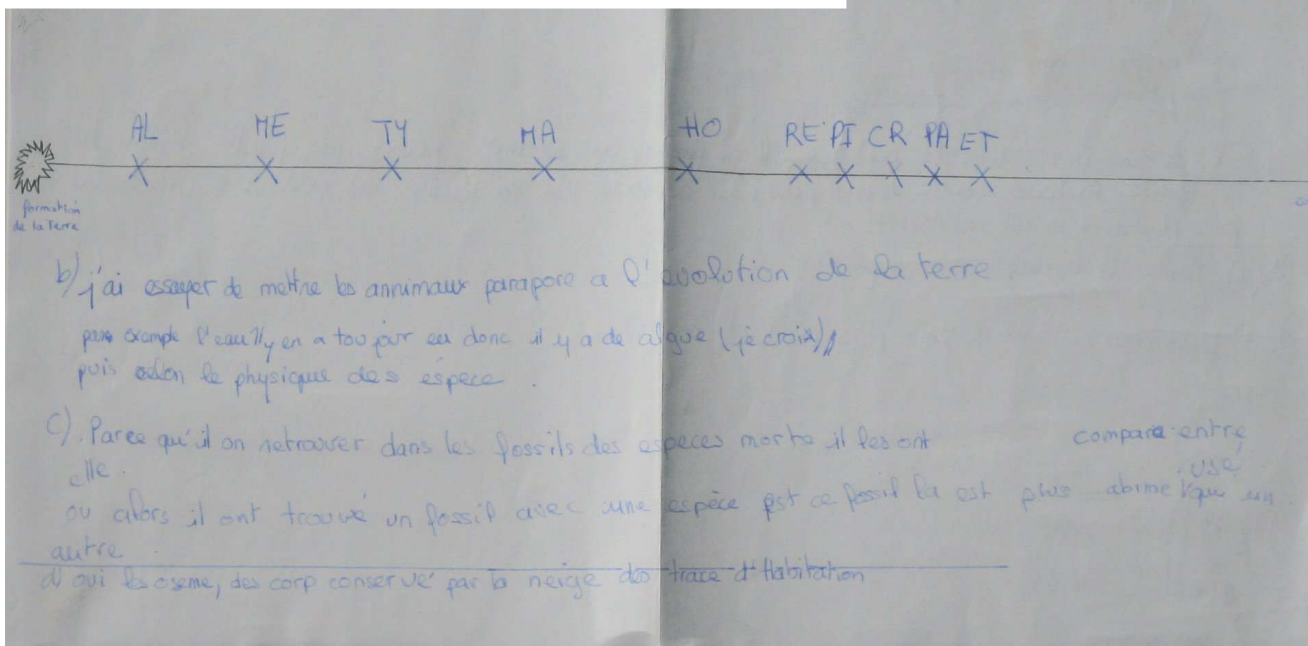 AL ME TY MA HO RE PI CR PA ET
formation
de la Terre
b) j'ai essayer de mettre les annimaux parapore a l'evolution de la terre
par example l'eau il y en a toujour eu donc il y a de algue (je crois)
puis selon le physique des espece.
c). Parce qu'il on retrouver dans les fossils des especes morte il les ont compare entre
elle.
ou alors il ont trouvé un fossil avec une espèce est ce fossil la est plus abimé usé que un
autre.
d) oui les oseme, des corp conservé par la neige des trace d'Habitation